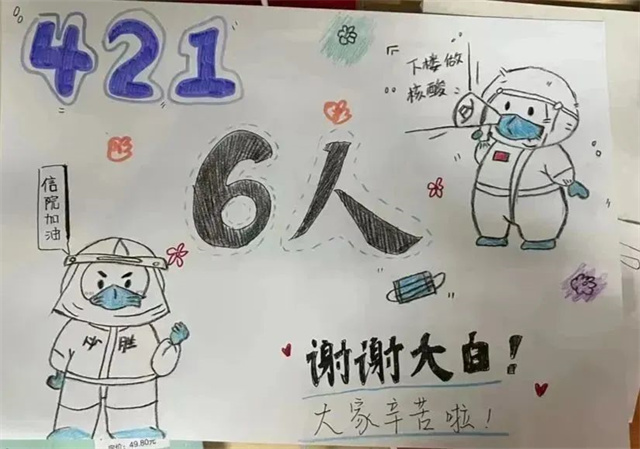 421
下楼做
核酸
6人
信院加油
必胜
谢谢大白！
大家辛苦啦！
定价：49.80元